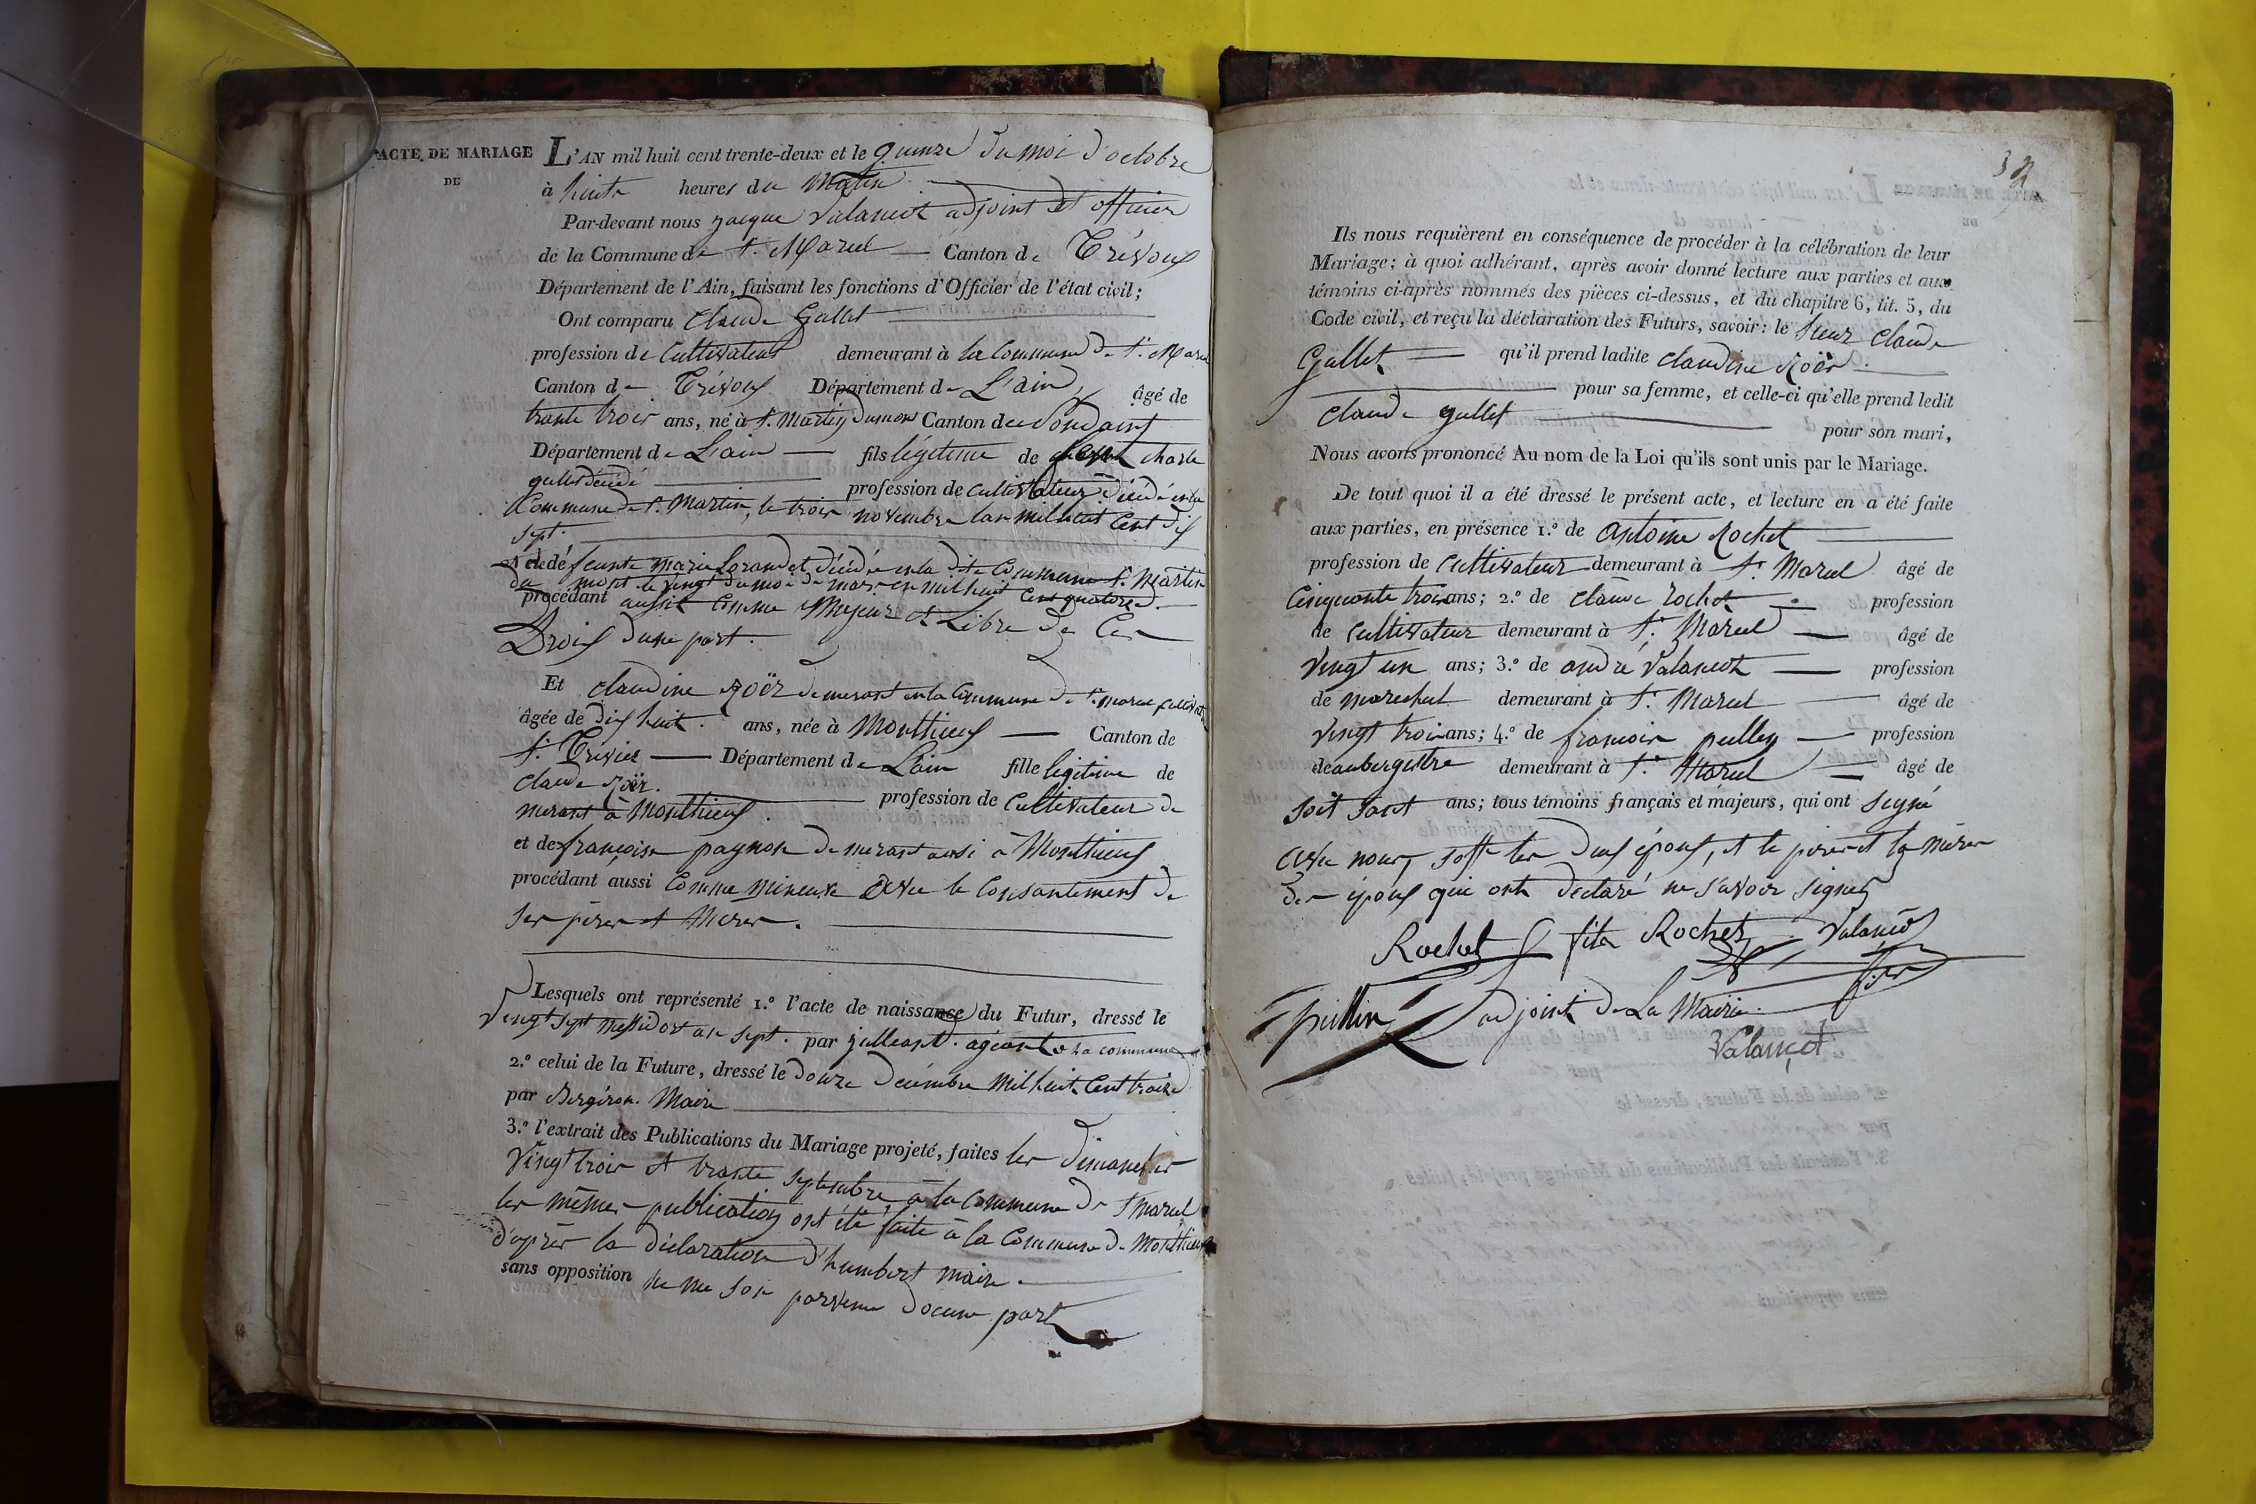 ACTE DE MARIAGE
DE
L'AN mil huit cent trente-deux et le quinze du moi d'octobre
à huite heures du Matin
Par-devant nous jacque Valancot adjoint et officier
de la Commune de St. Marcel Canton de Trévoux
Département de l'Ain, faisant les fonctions d'Officier de l'état civil;
Ont comparu Claude Gullet
profession de Cultivateur demeurant à la Commune de St. Marcel
Canton de Trévoux Département de L'ain, âgé de
trante trois ans, né à St. Martin Dumont Canton de
Département de L'ain fils légitime de charle
gullet décédé profession de cultivateur décédé en la
Commune de St. Martin, le trois novembre lan mil huit Cent dix
sept.
et de défeunte Marie décédée en la dite Commune St. Martin
du mont le vingt du moi de mars en mil huit Cens quatorze
procédant aussit Comme Majeur et Libre de Ces
Droix dune part.
Et claudine Roër demeurant en la Commune de St. Marcel
âgée de dix huit. ans, née à Monthieux Canton de
St. Trévier Département de L'ain fille légitime de
claude Roër. profession de Cultivateur de
merant à Monthieux.
et de françoise pagnon demerant aussi à Monthieux
procédant aussi Comme mineure avec le Consantement de
ses pères et Meres.
Lesquels ont représenté 1.° l'acte de naissance du Futur, dressé le
Vingt sept Messidort an sept. par julleant. agéant la commune
2.° celui de la Future, dressé le douze décembre mil huit Cent traize
par Bergiron. Maire
3.° l'extrait des Publications du Mariage projeté, faites les dimanches
Vingt trois et trante septembre à la Commune de St Marcel
les mêmes publication ont été faite à la Commune de Monthieux
d'après la déclaration d'humbert maire.
sans opposition ne me son parvenu docune part
32
Ils nous requièrent en conséquence de procéder à la célébration de leur
Mariage; à quoi adhérant, après avoir donné lecture aux parties et aux
témoins ci-après nommés des pièces ci-dessus, et du chapitre 6, tit. 5, du
Code civil, et reçu la déclaration des Futurs, savoir: le sieur claude
Gullet qu'il prend ladite claudine Roër.
pour sa femme, et celle-ci qu'elle prend ledit
claude gullet pour son mari,
Nous avons prononcé Au nom de la Loi qu'ils sont unis par le Mariage.
De tout quoi il a été dressé le présent acte, et lecture en a été faite
aux parties, en présence 1.° de Antoine Rochet
profession de Cultivateur demeurant à St. Marcel âgé de
Cinquante trois ans; 2.° de claude rochet profession
de Cultivateur demeurant à St. Marcel âgé de
Vingt un ans; 3.° de andré Valancot profession
de marechal demeurant à St. Marcel âgé de
Vingt trois ans; 4.° de francois profession
de aubergistre demeurant à St. Marcel âgé de
soit sant ans; tous témoins français et majeurs, qui ont signé
avec nous, les deux époux, et le père et la mère
des époux qui ont déclaré ne savoir signer
Rochet fils Rochet Valancot
adjoint de La Mairie.
Valançot